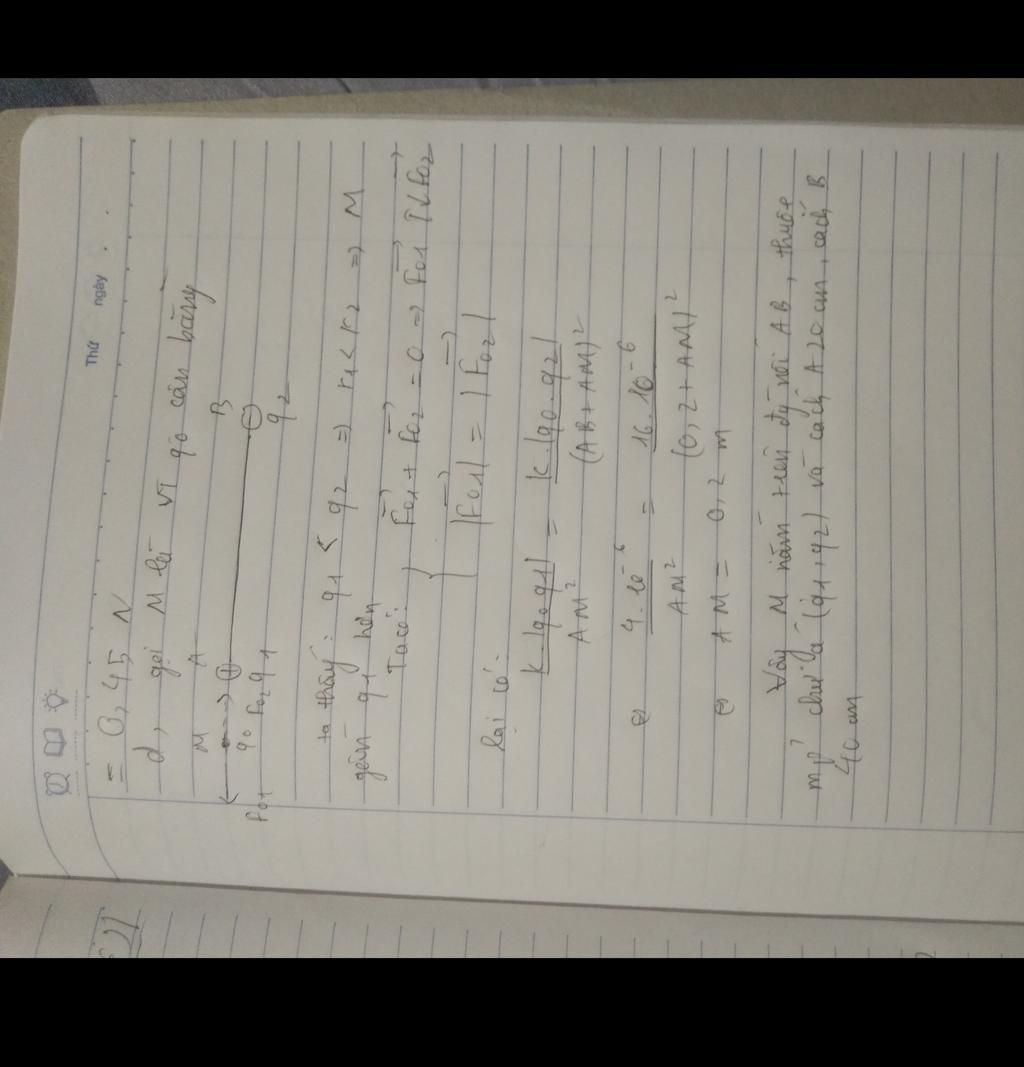 Thứ
ngày
= 0,45 N
d, gọi M là vị q0 cân bằng
M A B
q0 F02 q1 q2
F01
ta thấy: q1 < q2 => r1 < r2 => M
gần q1 hơn
Ta có: F01 + F02 = 0 => F01 ↑↓ F02
|F01| = |F02|
lại có:
k.|q0q1| / AM² = k.|q0.q2| / (AB + AM)²
⇔ 4.10⁻⁶ / AM² = 16.10⁻⁶ / (0,2 + AM)²
⇔ AM = 0,2 m
Vậy M nằm trên đg nối AB, thuộc
mp' chứa (q1, q2) và cách A 20 cm, cách B
40 cm